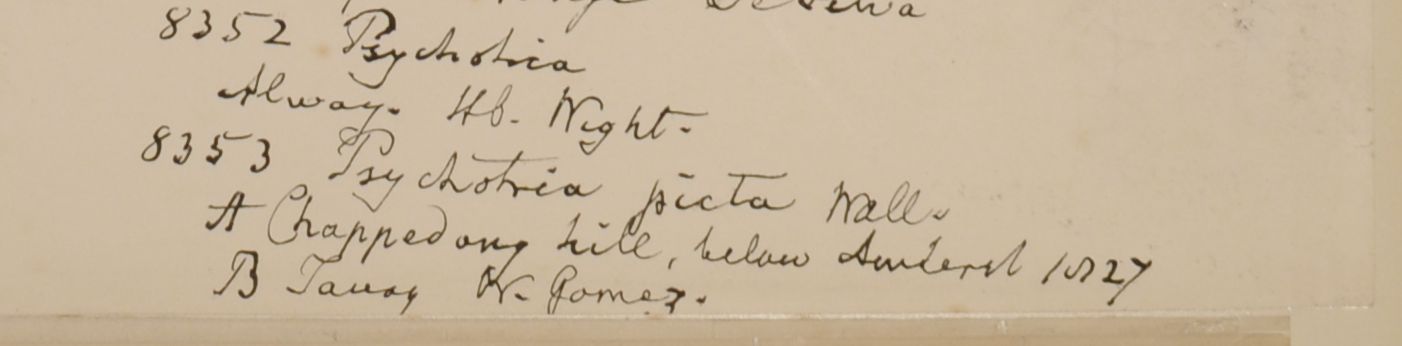 8352 Psychotria
Alway. Hb. Wight.
8353 Psychotria picta Wall.
A Chappedong hill, below Amherst 1827
B Tavoy W. Gomez.